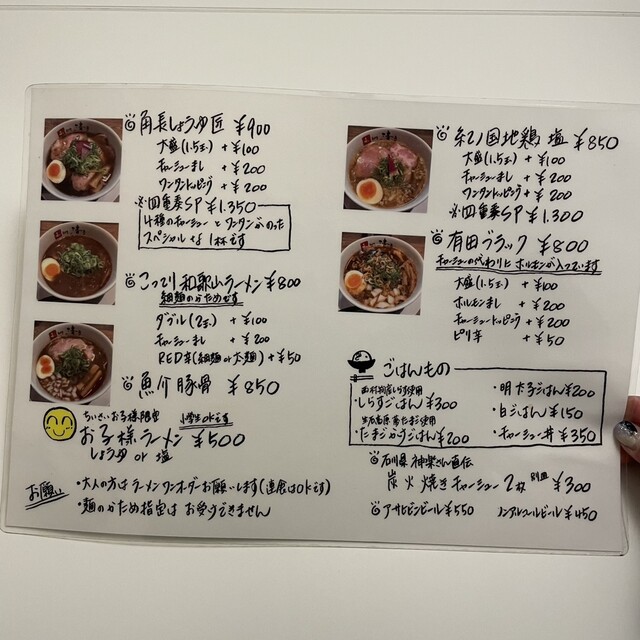 角長しょうゆ匠 ¥900
大盛(1.5玉) +¥100
チャーシューまし +¥200
ワンタントッピング +¥200
※四重奏SP ¥1.350
4種のチャーシューとワンタンがのった
スペシャルな1杯です
こってり和歌山ラーメン ¥800
細麺のかためです
ダブル(2玉) +¥100
チャーシューまし +¥200
RED辛(細麺or太麺) +¥50
魚介豚骨 ¥850
ちいさいお子様限定 小学生okです
お子様ラーメン ¥500
しょうゆ or 塩
お願い
・大人の方はラーメンワンオーダーお願いします(連食はokです)
・麺のかため指定はお受けできません
紀ノ国地鶏 塩 ¥850
大盛(1.5玉) +¥100
チャーシューまし +¥200
ワンタントッピング +¥200
※四重奏SP ¥1.300
有田ブラック ¥800
チャーシューの代わりにホルモンが入っています
大盛(1.5玉) +¥100
ホルモンまし +¥200
チャーシュートッピング +¥200
ピリ辛 +¥50
ごはんもの
・しらすごはん ¥300
・たまごかけごはん ¥200
・明太子ごはん ¥200
・白ごはん ¥150
・チャーシュー丼 ¥350
石川県 神楽さん直伝
炭火焼きチャーシュー 2枚 別皿 ¥300
アサヒビンビール ¥550 ノンアルコールビール ¥450